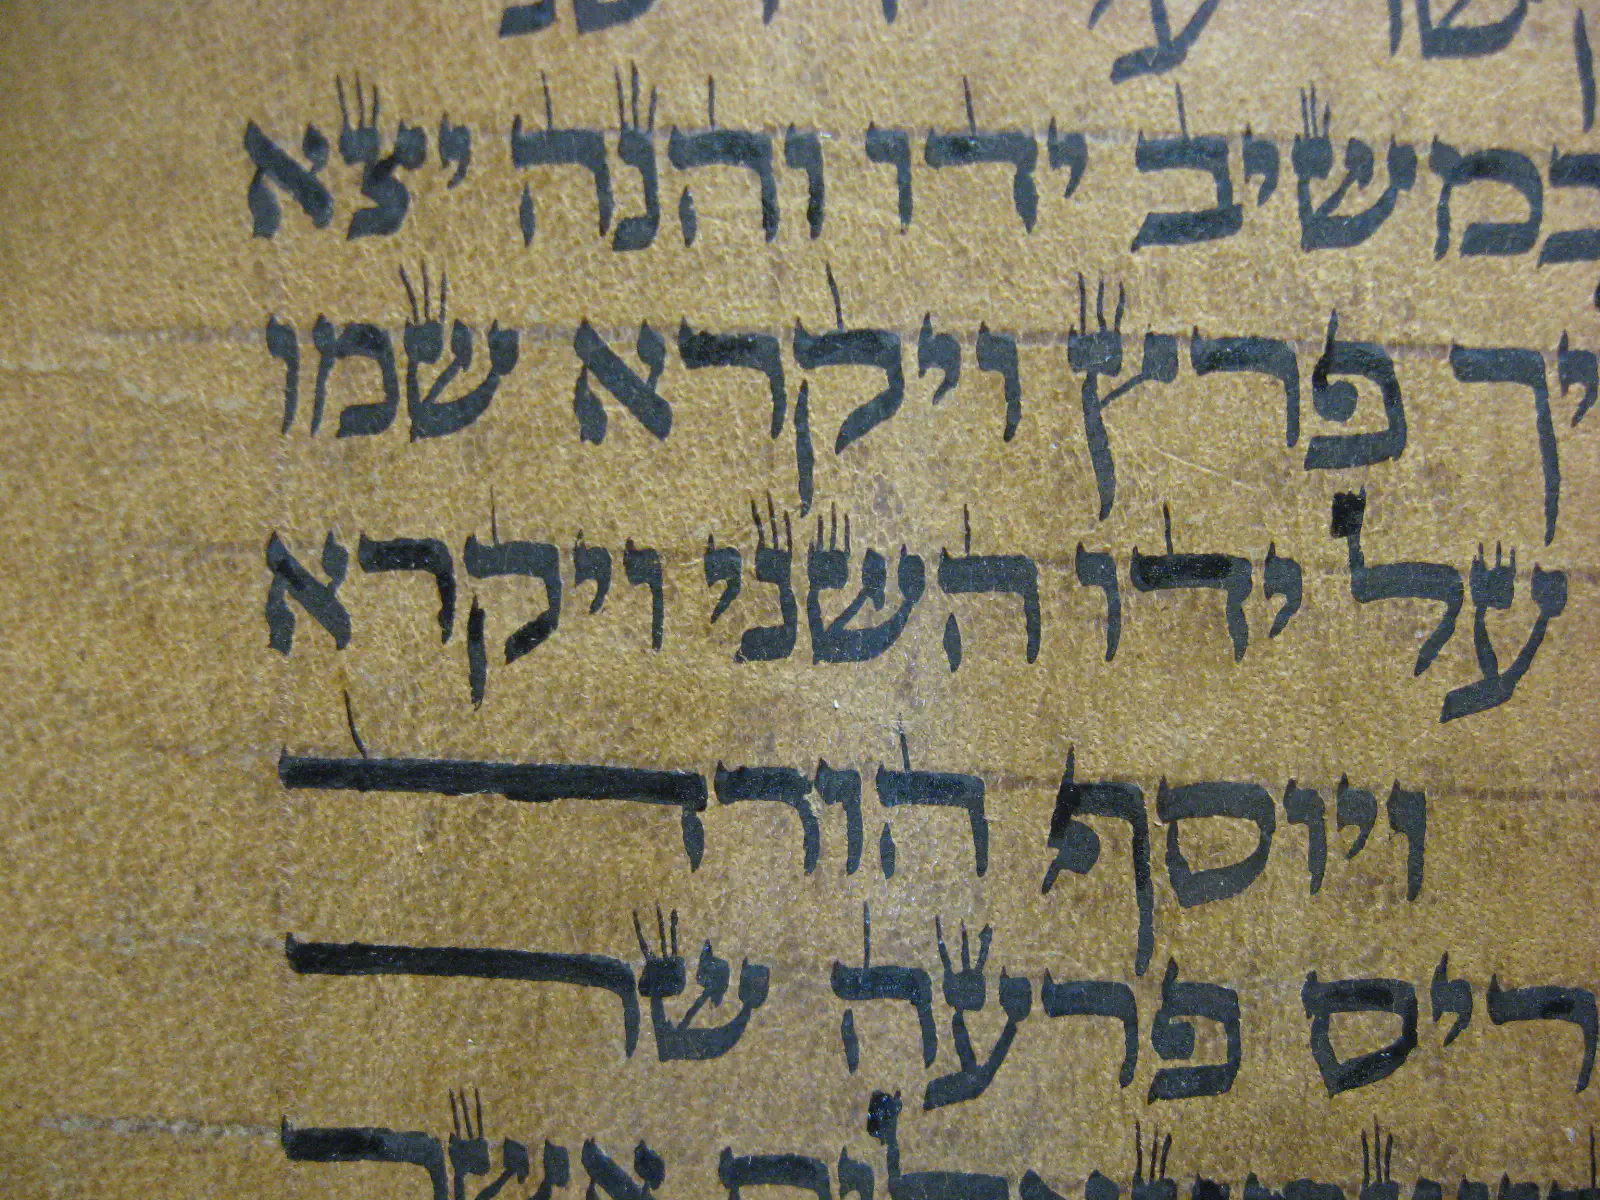 במשיב ידו והנה יצא
פרץ ויקרא שמו
על ידו השני ויקרא
ויוסף הורד
פרעה שר
אשר